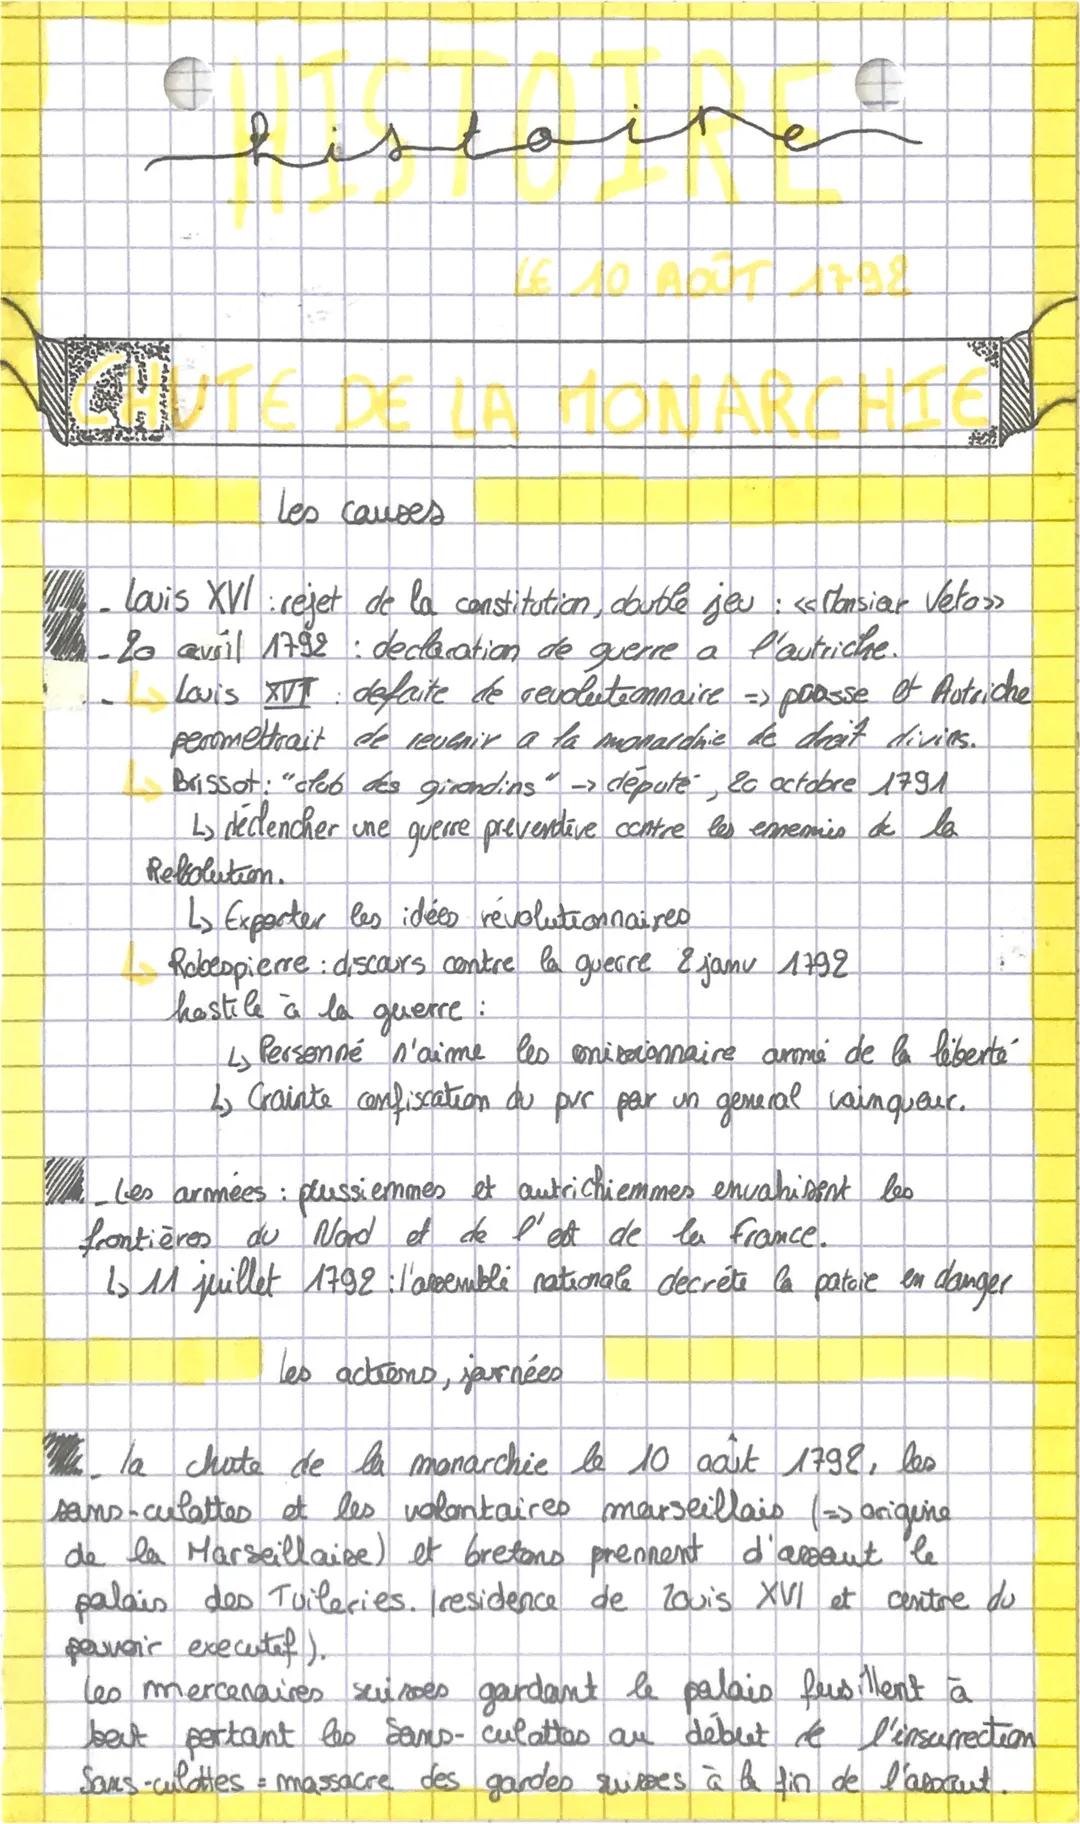 HISTOIRE
histoire
LE 10 AOÛT 1792
CHUTE DE LA MONARCHIE
Les causes
- Louis XVI : rejet de la constitution, double jeu : << Monsiar Veto >>
- 20 avril 1792 : declaration de guerre a l'autriche.
- ↳ Louis XVI : defaite de revolutionnaire => prusse et Autriche
permettrait de revenir a la monarchie de droit divins.
↳ Brissot : "club des girondins" -> député, 20 octobre 1791
↳ déclencher une guerre preventive contre les ennemis de la
Revolution.
↳ Exporter les idées révolutionnaires
↳ Robespierre : discours contre la guerre 2 janv 1792
hostile à la guerre :
↳ Personné n'aime les missionnaire armé de la liberté
↳ Crainte confiscation du pvr par un general vainqueur.
- Les armées : prussiennes et autrichiennes envahissent les
frontières du Nord et de l'est de la France.
↳ 11 juillet 1792 : l'assemblé nationale decrète la patrie en danger
les actions, journées
- la chute de la monarchie le 10 août 1792, les
sans-culottes et les volontaires marseillais (=> origine
de la Marseillaise) et bretons prennent d'assaut le
palais des Tuileries. (residence de Louis XVI et centre du
pouvoir executif).
Les mercenaires suisses gardant le palais fusillent à
bout portant les Sans-culottes au début de l'insurrection
Sans-culottes = massacre des gardes suisses à la fin de l'assaut.